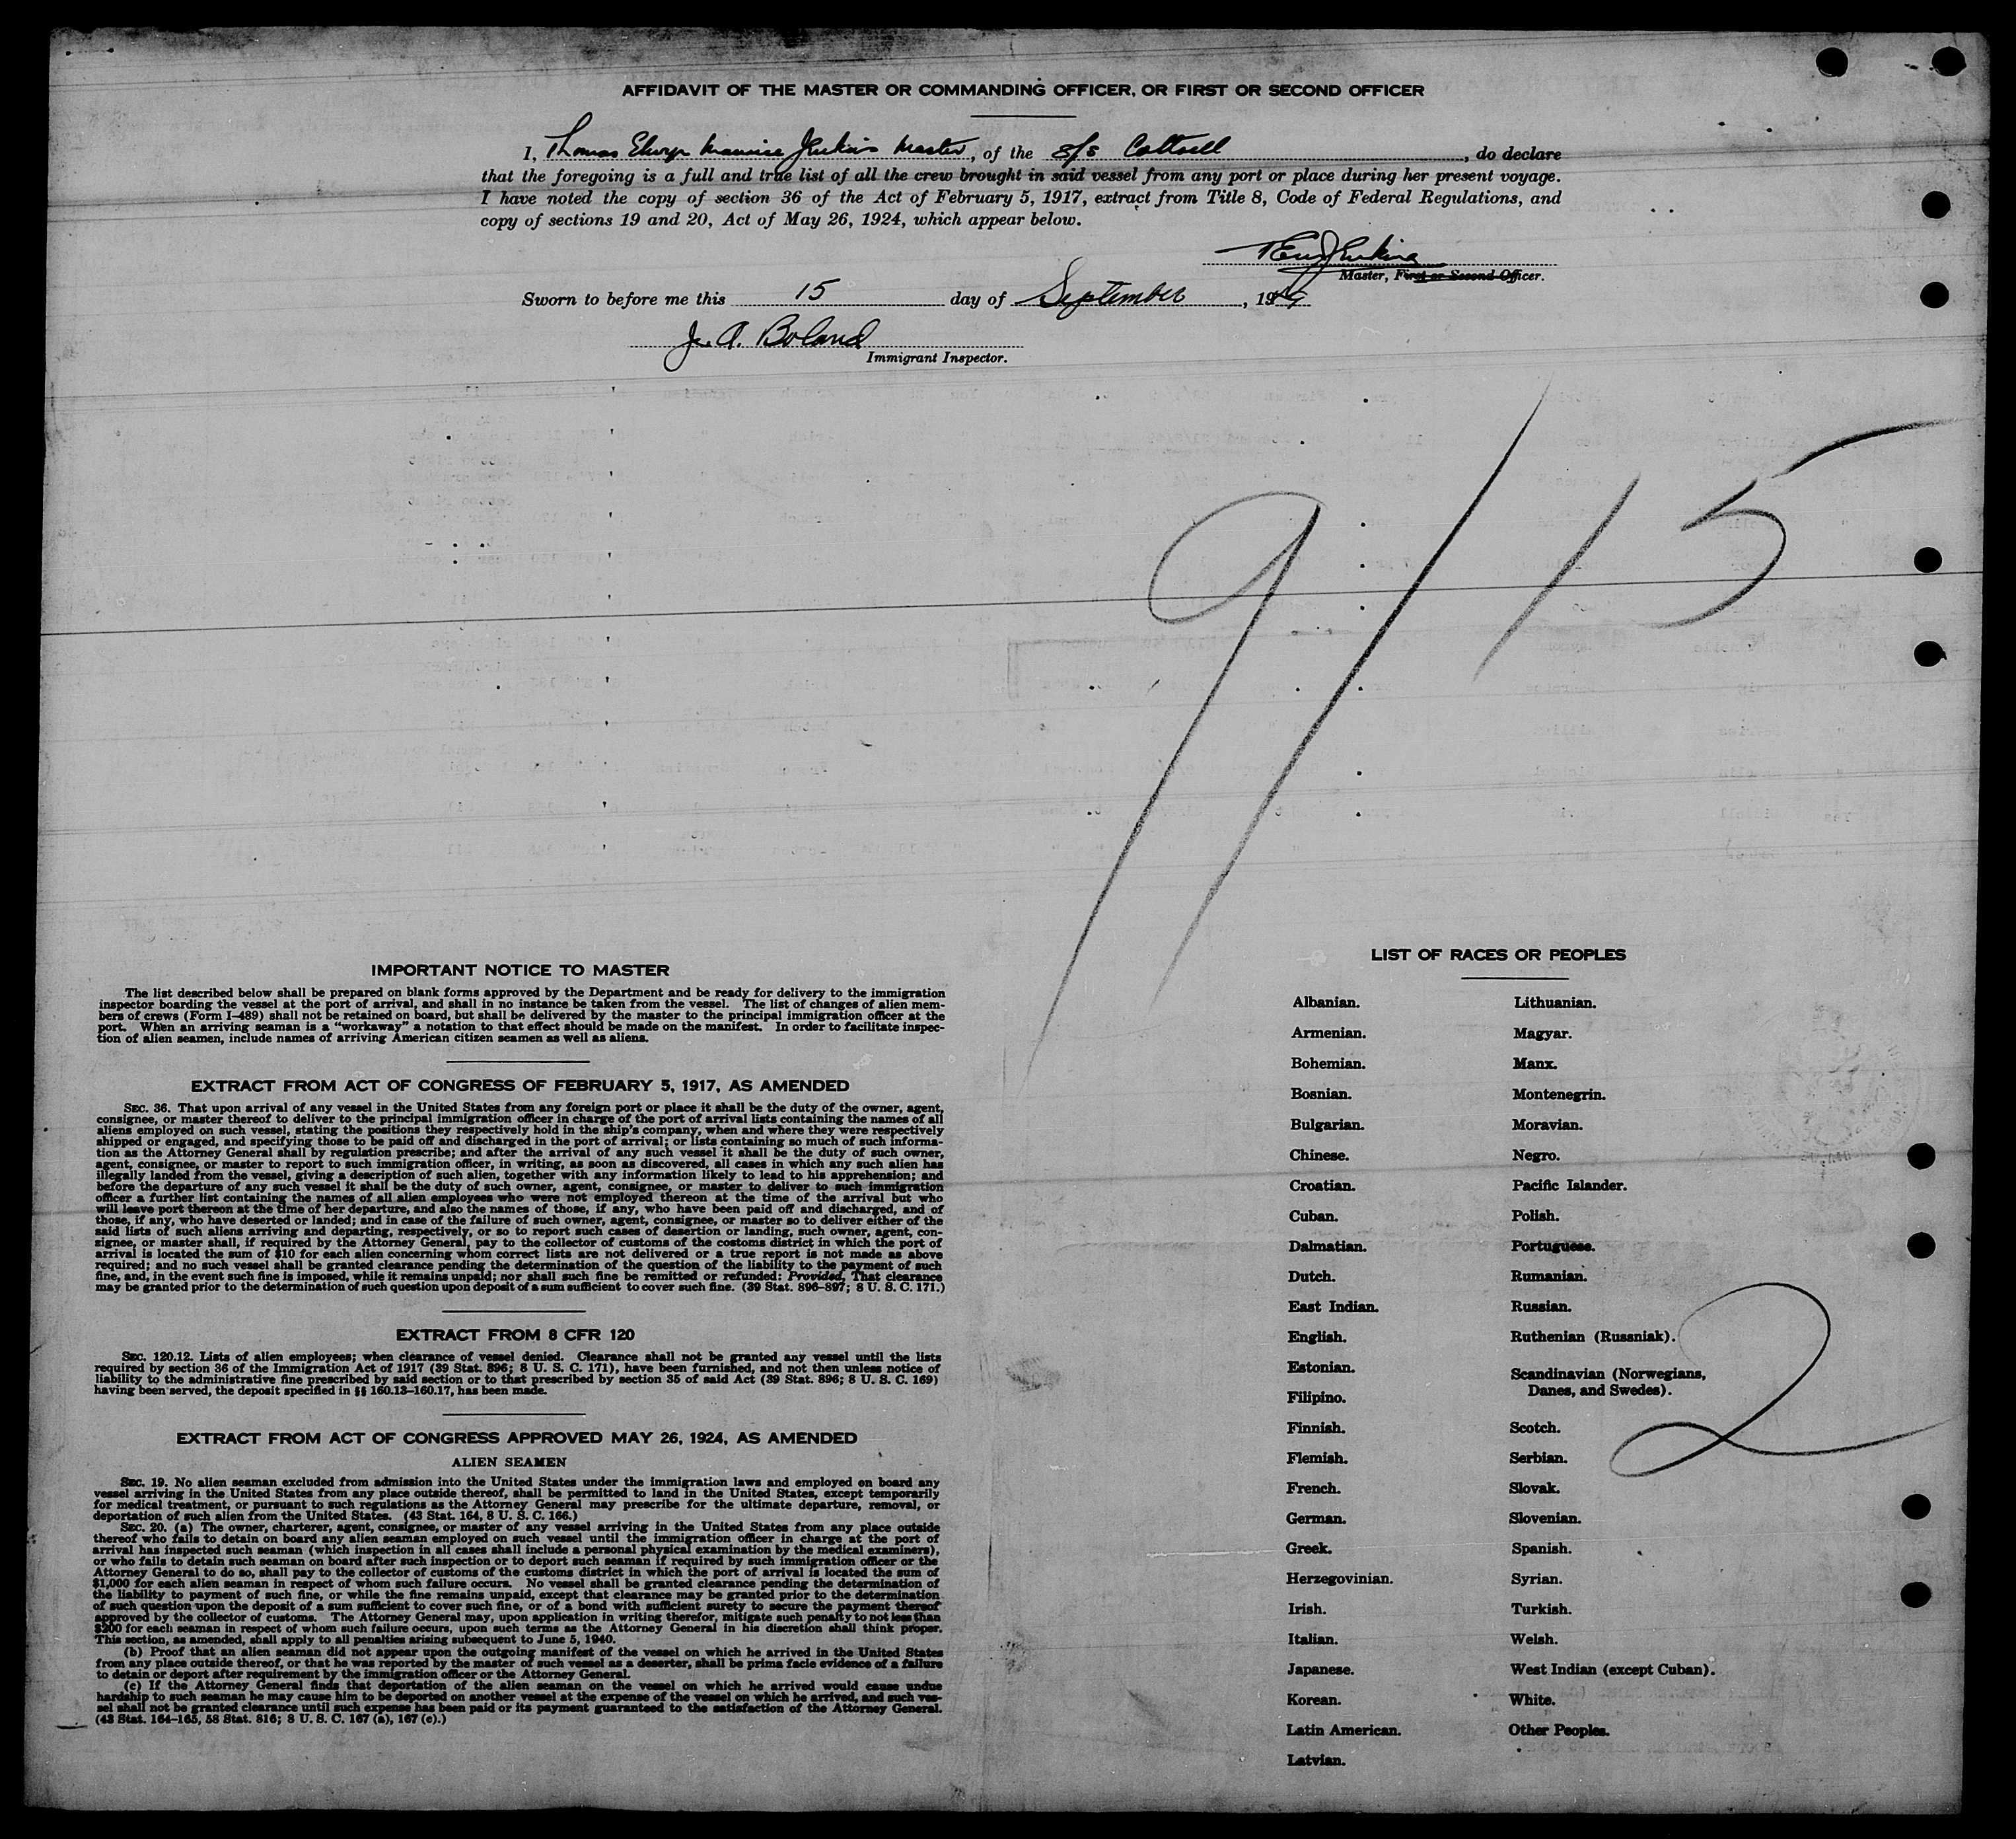 AFFIDAVIT OF THE MASTER OR COMMANDING OFFICER, OR FIRST OR SECOND OFFICER
I, Thomas Maurice Jenkins Master, of the S/S, do declare
that the foregoing is a full and true list of all the crew brought in said vessel from any port or place during her present voyage.
I have noted the copy of section 36 of the Act of February 5, 1917, extract from Title 8, Code of Federal Regulations, and
copy of sections 19 and 20, Act of May 26, 1924, which appear below.
Jenkins
Master, First or Second Officer.
Sworn to before me this 15 day of September, 19
J. A. Boland
Immigrant Inspector.
9/15
IMPORTANT NOTICE TO MASTER
The list described below shall be prepared on blank forms approved by the Department and be ready for delivery to the immigration
inspector boarding the vessel at the port of arrival, and shall in no instance be taken from the vessel. The list of changes of alien mem-
bers of crews (Form I-489) shall not be retained on board, but shall be delivered by the master to the principal immigration officer at the
port. When an arriving seaman is a "workaway" a notation to that effect should be made on the manifest. In order to facilitate inspec-
tion of alien seamen, include names of arriving American citizen seamen as well as aliens.
EXTRACT FROM ACT OF CONGRESS OF FEBRUARY 5, 1917, AS AMENDED
SEC. 36. That upon arrival of any vessel in the United States from any foreign port or place it shall be the duty of the owner, agent,
consignee, or master thereof to deliver to the principal immigration officer in charge of the port of arrival lists containing the names of all
aliens employed on such vessel, stating the positions they respectively hold in the ship's company, when and where they were respectively
shipped or engaged, and specifying those to be paid off and discharged in the port of arrival; or lists containing so much of such informa-
tion as the Attorney General shall by regulation prescribe; and after the arrival of any such vessel it shall be the duty of such owner,
agent, consignee, or master to report to such immigration officer, in writing, as soon as discovered, all cases in which any such alien has
illegally landed from the vessel, giving a description of such alien, together with any information likely to lead to his apprehension; and
before the departure of any such vessel it shall be the duty of such owner, agent, consignee, or master to deliver to such immigration
officer a further list containing the names of all alien employees who were not employed thereon at the time of the arrival but who
will leave port thereon at the time of her departure, and also the names of those, if any, who have been paid off and discharged, and of
those, if any, who have deserted or landed; and in case of the failure of such owner, agent, consignee, or master so to deliver either of the
said lists of such aliens arriving and departing, respectively, or so to report such cases of desertion or landing, such owner, agent, con-
signee, or master shall, if required by the Attorney General, pay to the collector of customs of the costoms district in which the port of
arrival is located the sum of $10 for each alien concerning whom correct lists are not delivered or a true report is not made as above
required; and no such vessel shall be granted clearance pending the determination of the question of the liability to the payment of such
fine, and, in the event such fine is imposed, while it remains unpaid; nor shall such fine be remitted or refunded: Provided, That clearance
may be granted prior to the determination of such question upon deposit of a sum sufficient to cover such fine. (39 Stat. 896-897; 8 U. S. C. 171.)
EXTRACT FROM 8 CFR 120
SEC. 120.12. Lists of alien employees; when clearance of vessel denied. Clearance shall not be granted any vessel until the lists
required by section 36 of the Immigration Act of 1917 (39 Stat. 896; 8 U. S. C. 171), have been furnished, and not then unless notice of
liability to the administrative fine prescribed by said section or to that prescribed by section 35 of said Act (39 Stat. 896; 8 U. S. C. 169)
having been served, the deposit specified in §§ 160.13-160.17, has been made.
EXTRACT FROM ACT OF CONGRESS APPROVED MAY 26, 1924, AS AMENDED
ALIEN SEAMEN
SEC. 19. No alien seaman excluded from admission into the United States under the immigration laws and employed on board any
vessel arriving in the United States from any place outside thereof, shall be permitted to land in the United States, except temporarily
for medical treatment, or pursuant to such regulations as the Attorney General may prescribe for the ultimate departure, removal, or
deportation of such alien from the United States. (43 Stat. 164, 8 U. S. C. 166.)
SEC. 20. (a) The owner, charterer, agent, consignee, or master of any vessel arriving in the United States from any place outside
thereof who fails to detain on board any alien seaman employed on such vessel until the immigration officer in charge at the port of
arrival has inspected such seaman (which inspection in all cases shall include a personal physical examination by the medical examiners),
or who fails to detain such seaman on board after such inspection or to deport such seaman if required by such immigration officer or the
Attorney General to do so, shall pay to the collector of customs of the customs district in which the port of arrival is located the sum of
$1,000 for each alien seaman in respect of whom such failure occurs. No vessel shall be granted clearance pending the determination of
the liability to payment of such fine, or while the fine remains unpaid, except that clearance may be granted prior to the determination
of such question upon the deposit of a sum sufficient to cover such fine, or of a bond with sufficient surety to secure the payment thereof
approved by the collector of customs. The Attorney General may, upon application in writing therefor, mitigate such penalty to not less than
$200 for each seaman in respect of whom such failure occurs, upon such terms as the Attorney General in his discretion shall think proper.
This section, as amended, shall apply to all penalties arising subsequent to June 5, 1940.
(b) Proof that an alien seaman did not appear upon the outgoing manifest of the vessel on which he arrived in the United States
from any place outside thereof, or that he was reported by the master of such vessel as a deserter, shall be prima facie evidence of a failure
to detain or deport after requirement by the immigration officer or the Attorney General.
(c) If the Attorney General finds that deportation of the alien seaman on the vessel on which he arrived would cause undue
hardship to such seaman he may cause him to be deported on another vessel at the expense of the vessel on which he arrived, and such ves-
sel shall not be granted clearance until such expense has been paid or its payment guaranteed to the satisfaction of the Attorney General.
(43 Stat. 164-165, 58 Stat. 816; 8 U. S. C. 167 (a), 167 (c).)
LIST OF RACES OR PEOPLES
Albanian.
Armenian.
Bohemian.
Bosnian.
Bulgarian.
Chinese.
Croatian.
Cuban.
Dalmatian.
Dutch.
East Indian.
English.
Estonian.
Filipino.
Finnish.
Flemish.
French.
German.
Greek.
Herzegovinian.
Irish.
Italian.
Japanese.
Korean.
Latin American.
Latvian.
Lithuanian.
Magyar.
Manx.
Montenegrin.
Moravian.
Negro.
Pacific Islander.
Polish.
Portuguese.
Rumanian.
Russian.
Ruthenian (Russniak).
Scandinavian (Norwegians,
Danes, and Swedes).
Scotch.
Serbian.
Slovak.
Slovenian.
Spanish.
Syrian.
Turkish.
Welsh.
West Indian (except Cuban).
White.
Other Peoples.
2